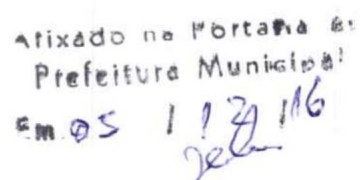 Afixado na Portaria da
Prefeitura Municipal
Em 05 / 12 / 16